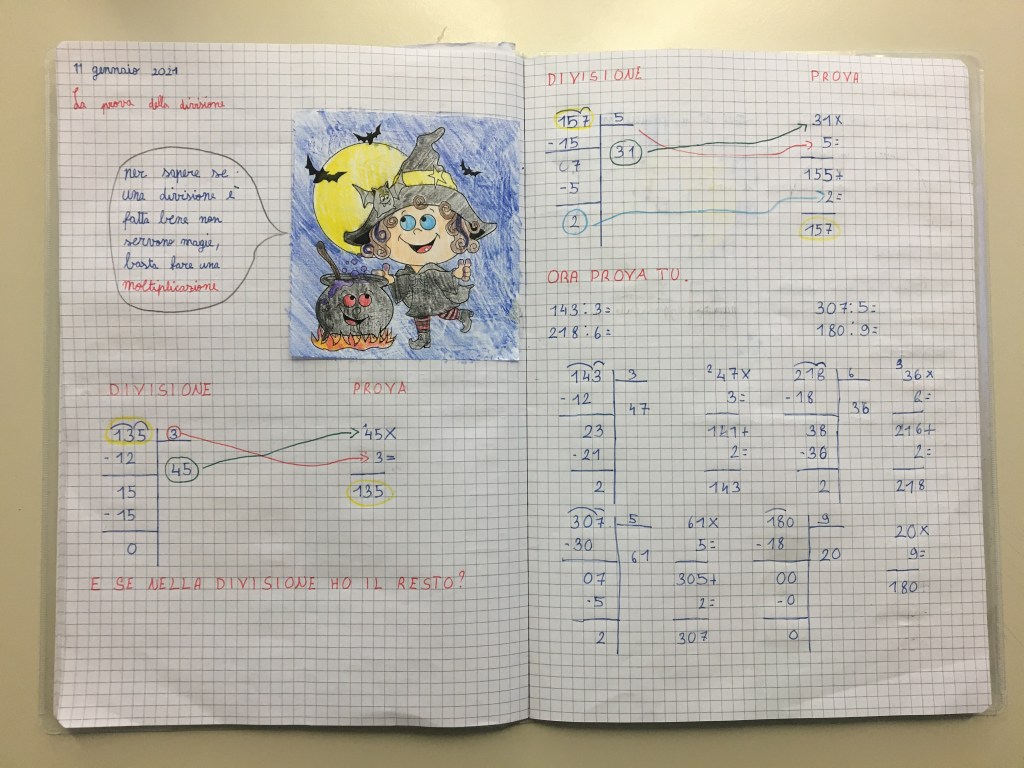 11 gennaio 2021
La prova della divisione
per sapere se
una divisione è
fatta bene non
servono magie,
basta fare una
moltiplicazione
DIVISIONE PROVA
135 3 45X
-12 45 3=
15 135
-15
0
E SE NELLA DIVISIONE HO IL RESTO?
DIVISIONE PROVA
157 5 31X
-15 31 5=
07 155+
-5 2=
2 157
ORA PROVA TU.
143:3= 307:5=
218:6= 180:9=
143 3 2 47X 218 6 3 36X
-12 47 3= -18 36 6=
23 141+ 38 216+
-21 2= -36 2=
2 143 2 218
307 5 61X 180 9 20X
-30 61 5= -18 20 9=
07 305+ 00 180
-5 2= -0
2 307 0